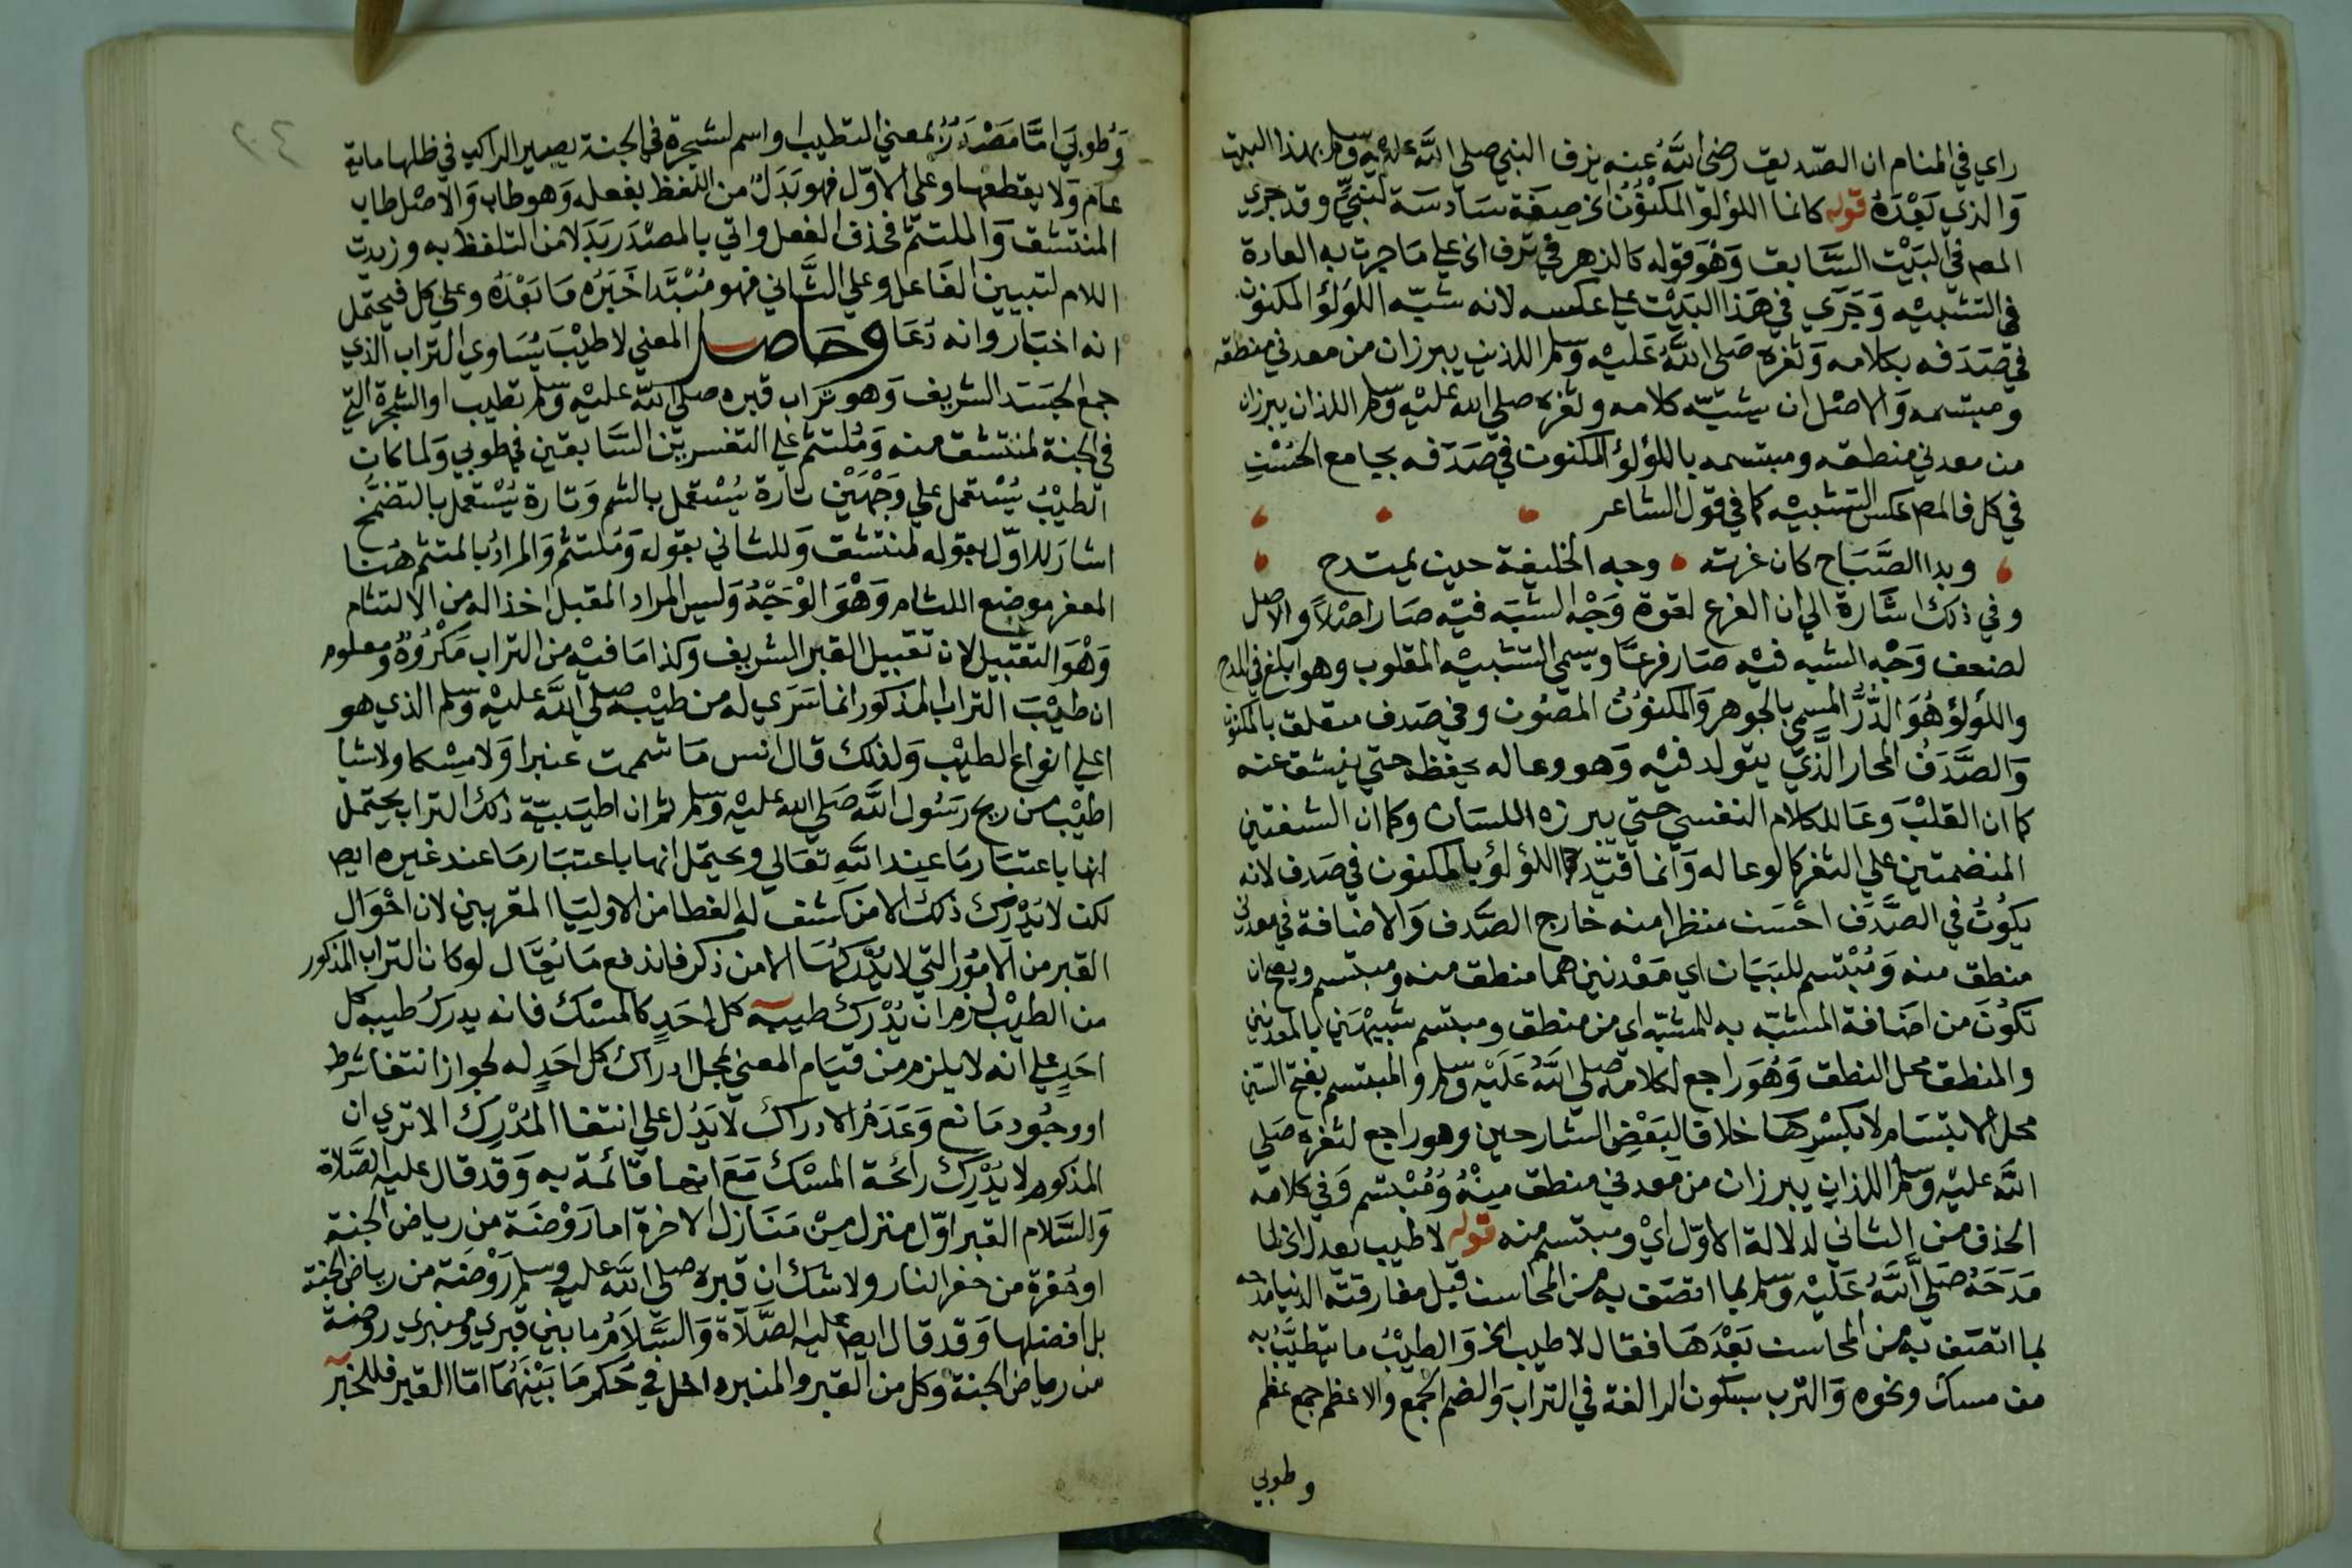 راي في المنام ان الصديق رضى الله عنه يزف النبي صلى الله عليه وسلم بهذا البيت
والذي بعده قوله كانما اللؤلؤ المكنون الخ صيغة سادسة لنبي وقد جري
المص في البيت السابق وهو قوله كالزهر في ترف الخ على ما جرت به العادة
في التشبيه وجري في هذا البيت على عكسه لانه شبه اللؤلؤ المكنون
في صدفه بكلامه وثغره صلى الله عليه وسلم اللذين يبرزان من معدني منطقه
ومبتسمه والاصل ان يشبه كلامه وثغره صلى الله عليه وسلم اللذان يبرزان
من معدني منطقه ومبتسمه باللؤلؤ المكنون في صدفه بجامع الحسن
في كل فالمص عكس التشبيه كما في قول الشاعر
وبدا الصباح كان غرته وجه الخليفة حين يمتدح
وفي ذلك اشارة الي ان الفرع لقوة وجه الشبه فيه صار اصلا والاصل
لضعف وجه الشبه فيه صار فرعا ويسمي التشبيه المقلوب وهو ابلغ في المدح
واللؤلؤ هو الدر المسمي بالجوهر والمكنون المصون وفي صدف متعلق بالمكنون
والصدف المحار الذي يتولد فيه وهو وعا له يحفظه حتي ينشق عنه
كما ان القلب وعا للكلام النفسي حتي يبرزه اللسان وكما ان الشفتين
المنضمتين علي الثغر كالوعا له وانما قيد اللؤلؤ بالمكنون في صدف لانه
يكون في الصدف احسن منظرا منه خارج الصدف والاضافة في معدني
منطق منه ومبتسم للبيان اي معدنين هما منطق منه ومبتسم ويصح ان
تكون من اضافة المشبه به للمشبه اي من منطق ومبتسم شبيهين بالمعدنين
والمنطق محل النطق وهو راجع لكلامه صلى الله عليه وسلم والمبتسم بفتح السين
محل الابتسام لا بكسرها خلافا لبعض الشارحين وهو راجع لثغره صلى
الله عليه وسلم اللذان يبرزان من معدني منطق منه ومبتسم وفي كلامه
الحذف من الثاني لدلالة الاول اي ومبتسم منه قوله لا طيب يعدل الخ لما
مدحه صلى الله عليه وسلم بما اتصف به من المحاسن قبل مفارقته الدنيا مدحه
بما اتصف به من المحاسن بعدها فقال لا طيب الخ والطيب ما يتطيب به
من مسك ونحوه والترب بسكون الرا لغة في التراب والضم الجمع والاعظم جمع عظم
وطوبي
٢٠٤
وطوبي اما مصدر بمعني التطيب او اسم لشجرة في الجنة يصير الراكب في ظلها ماية
عام ولا يقطعها وعلي الاول فهو بدل من اللفظ بفعله وهو طاب والاصل طاب
المنتشق والملتثم فحذف الفعل واتي بالمصدر بدلا من التلفظ به وزيدت
اللام لتبيين الفاعل وعلي الثاني فهو مبتدا خبره ما بعده وعلي كل فيحتمل
انه اخبار وانه دعا وحاصل المعني لا طيب يساوي التراب الذي
جمع الجسد الشريف وهو تراب قبره صلى الله عليه وسلم تطيب او الشجرة التي
في الجنة لمنتشق منه وملتثم علي التفسرين السابقين في طوبي ولما كان
الطيب يستعمل علي وجهين تارة يستعمل بالشم وتارة يستعمل بالتضمخ
اشار للاول بقوله لمنتشق وللثاني بقوله وملتثم والمراد بالملتثم هنا
المعفر موضع اللثام وهو الوجه وليس المراد المقبل اخذا له من الالتثام
وهو التقبيل لان تقبيل القبر الشريف وكذا ما فيه من التراب مكروه ومعلوم
ان طيب التراب المذكور انما سري له من طيبه صلى الله عليه وسلم الذي هو
اعلي انواع الطيب ولذلك قال انس ما شممت عنبرا ولا مسكا ولا شيا
اطيب من ريح رسول الله صلى الله عليه وسلم ثم ان اطيبية ذلك التراب يحتمل
انها باعتبار ما عند الله تعالي ويحتمل انها باعتبار ما عند غيره ايض
لكن لا يدرك ذلك الا من كشف له الغطا من الاوليا المقربين لان احوال
القبر من الامور التي لا يدركها الا من ذكر فاندفع ما يقال لو كان التراب المذكور
من الطيب لزم ان يدرك طيبه كل احد كالمسك فانه يدرك طيبه كل
احد علي انه لا يلزم من قيام المعني بمحل ادراك كل احد له لجواز انتفا شرط
او وجود مانع وعدم الادراك لا يدل علي انتفا المدرك الا تري ان
المذكوم لا يدرك رائحة المسك مع انها قائمة به وقد قال عليه الصلاة
والسلام القبر اول منزل من منازل الاخرة اما روضة من رياض الجنة
او حفرة من حفر النار ولا شك ان قبره صلى الله عليه وسلم روضة من رياض الجنة
بل افضلها وقد قال ايض عليه الصلاة والسلام ما بين قبري ومنبري روضة
من رياض الجنة وكل من القبر والمنبر داخل في حكم ما بينهما اما القبر فللخبر